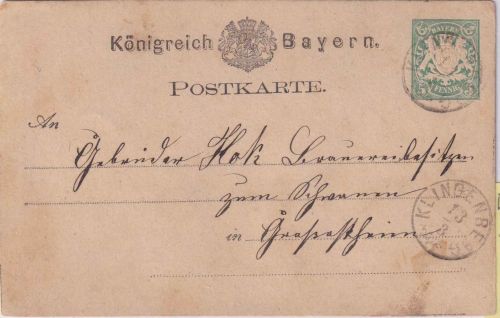 Königreich Bayern.
BAYERN
5 PFENNIG 5
POSTKARTE.
An
Gebrüder Hok Brauereibesitzer
zum Schwanen
in Großostheim
KLINGENBERG
13